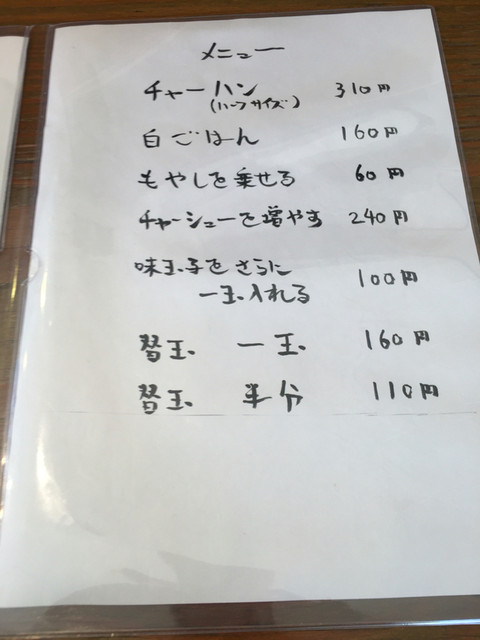 メニュー
チャーハン 310円
(ハーフサイズ)
白ごはん 160円
もやしを乗せる 60円
チャーシューを増やす 240円
味玉子をさらに
一玉入れる 100円
替玉 一玉 160円
替玉 半分 110円